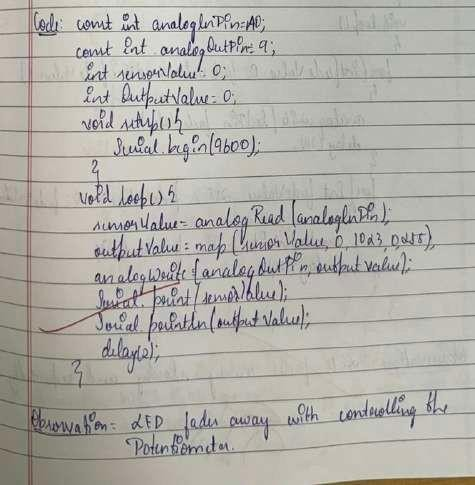 Code: const int analogInPin=A0;
const int analogOutPin=9;
int sensorValue=0;
int OutputValue=0;
void setup(){
Serial.begin(9600);
}
void loop(){
sensorValue=analogRead(analogInPin);
outputValue=map(sensorValue,0,1023,0255),
analogWrite(analogOutPin,outputvalue);
Serial.print(sensorValue);
Serial println(outputValue);
delay(2);
}
Observation= LED fades away with controlling the
Potentiometer.